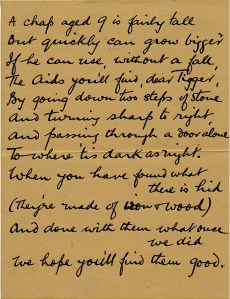 A chap aged 9 is fairly tall
But quickly can grow bigger
If he can use, without a fall,
The Aids you'll find, dear Tigger,
By going down two steps of stone
And turning sharp to right,
And passing through a door alone
To where 'tis dark as night.
When you have found what
there is hid
(They're made of iron & wood)
And done with them what once
we did
We hope you'll find them good.